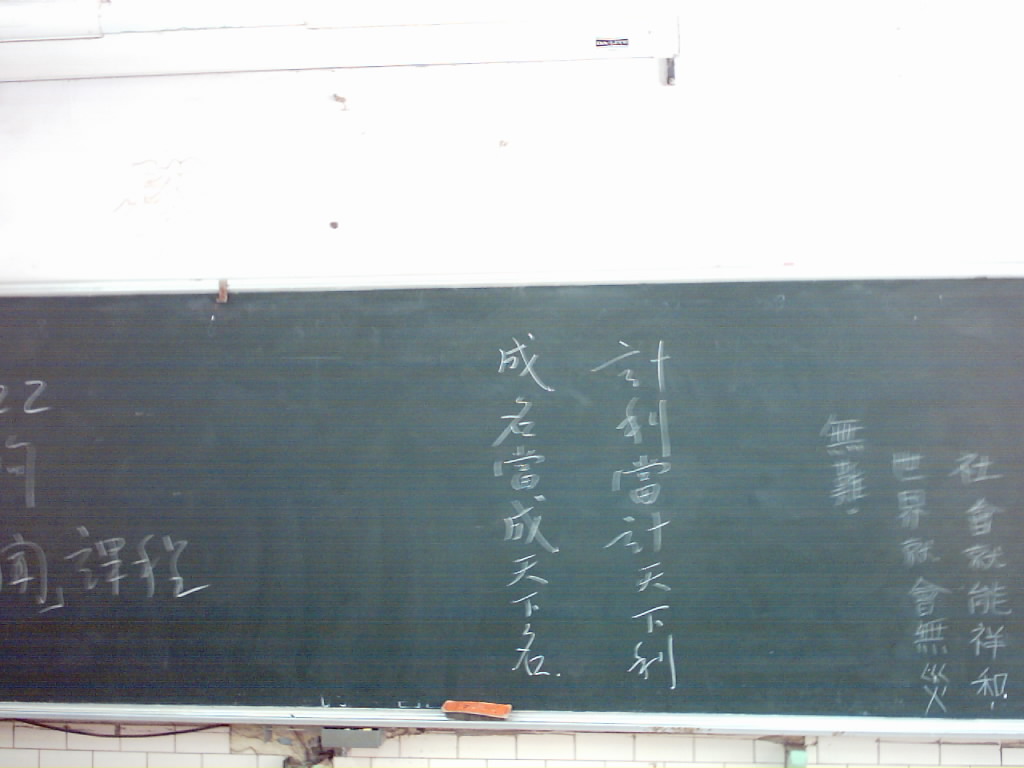 社會就能祥和!
世界就會無災
無難。
計利當計天下利
成名當成天下名.
22
聞」課程